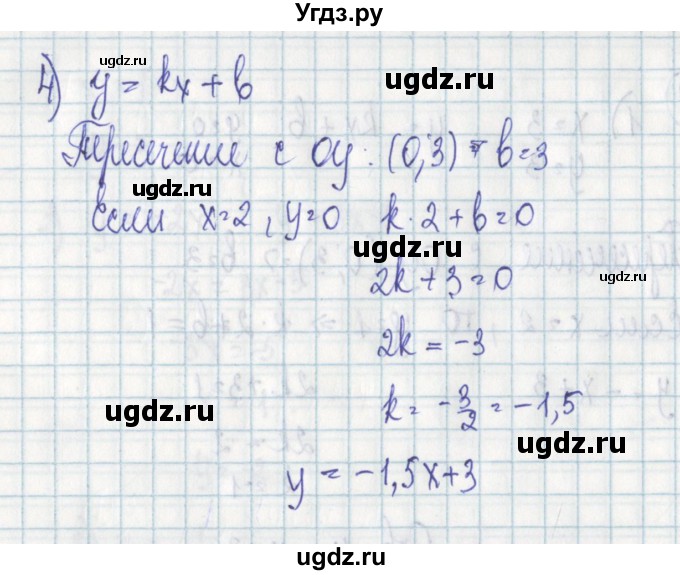 Угдз.ру
ugdz.ru
4) y = kx + b
ugdz.ru
Пересечение с OY: (0,3) - b=3
ugdz.ru
если x=2, y=0 k·2+b=0
ugdz.ru
2k+3=0
ugdz.ru
2k = -3
ugdz.ru
k = -3/2 = -1,5
ugdz.ru
y = -1,5x+3
ugdz.ru
ugdz.ru